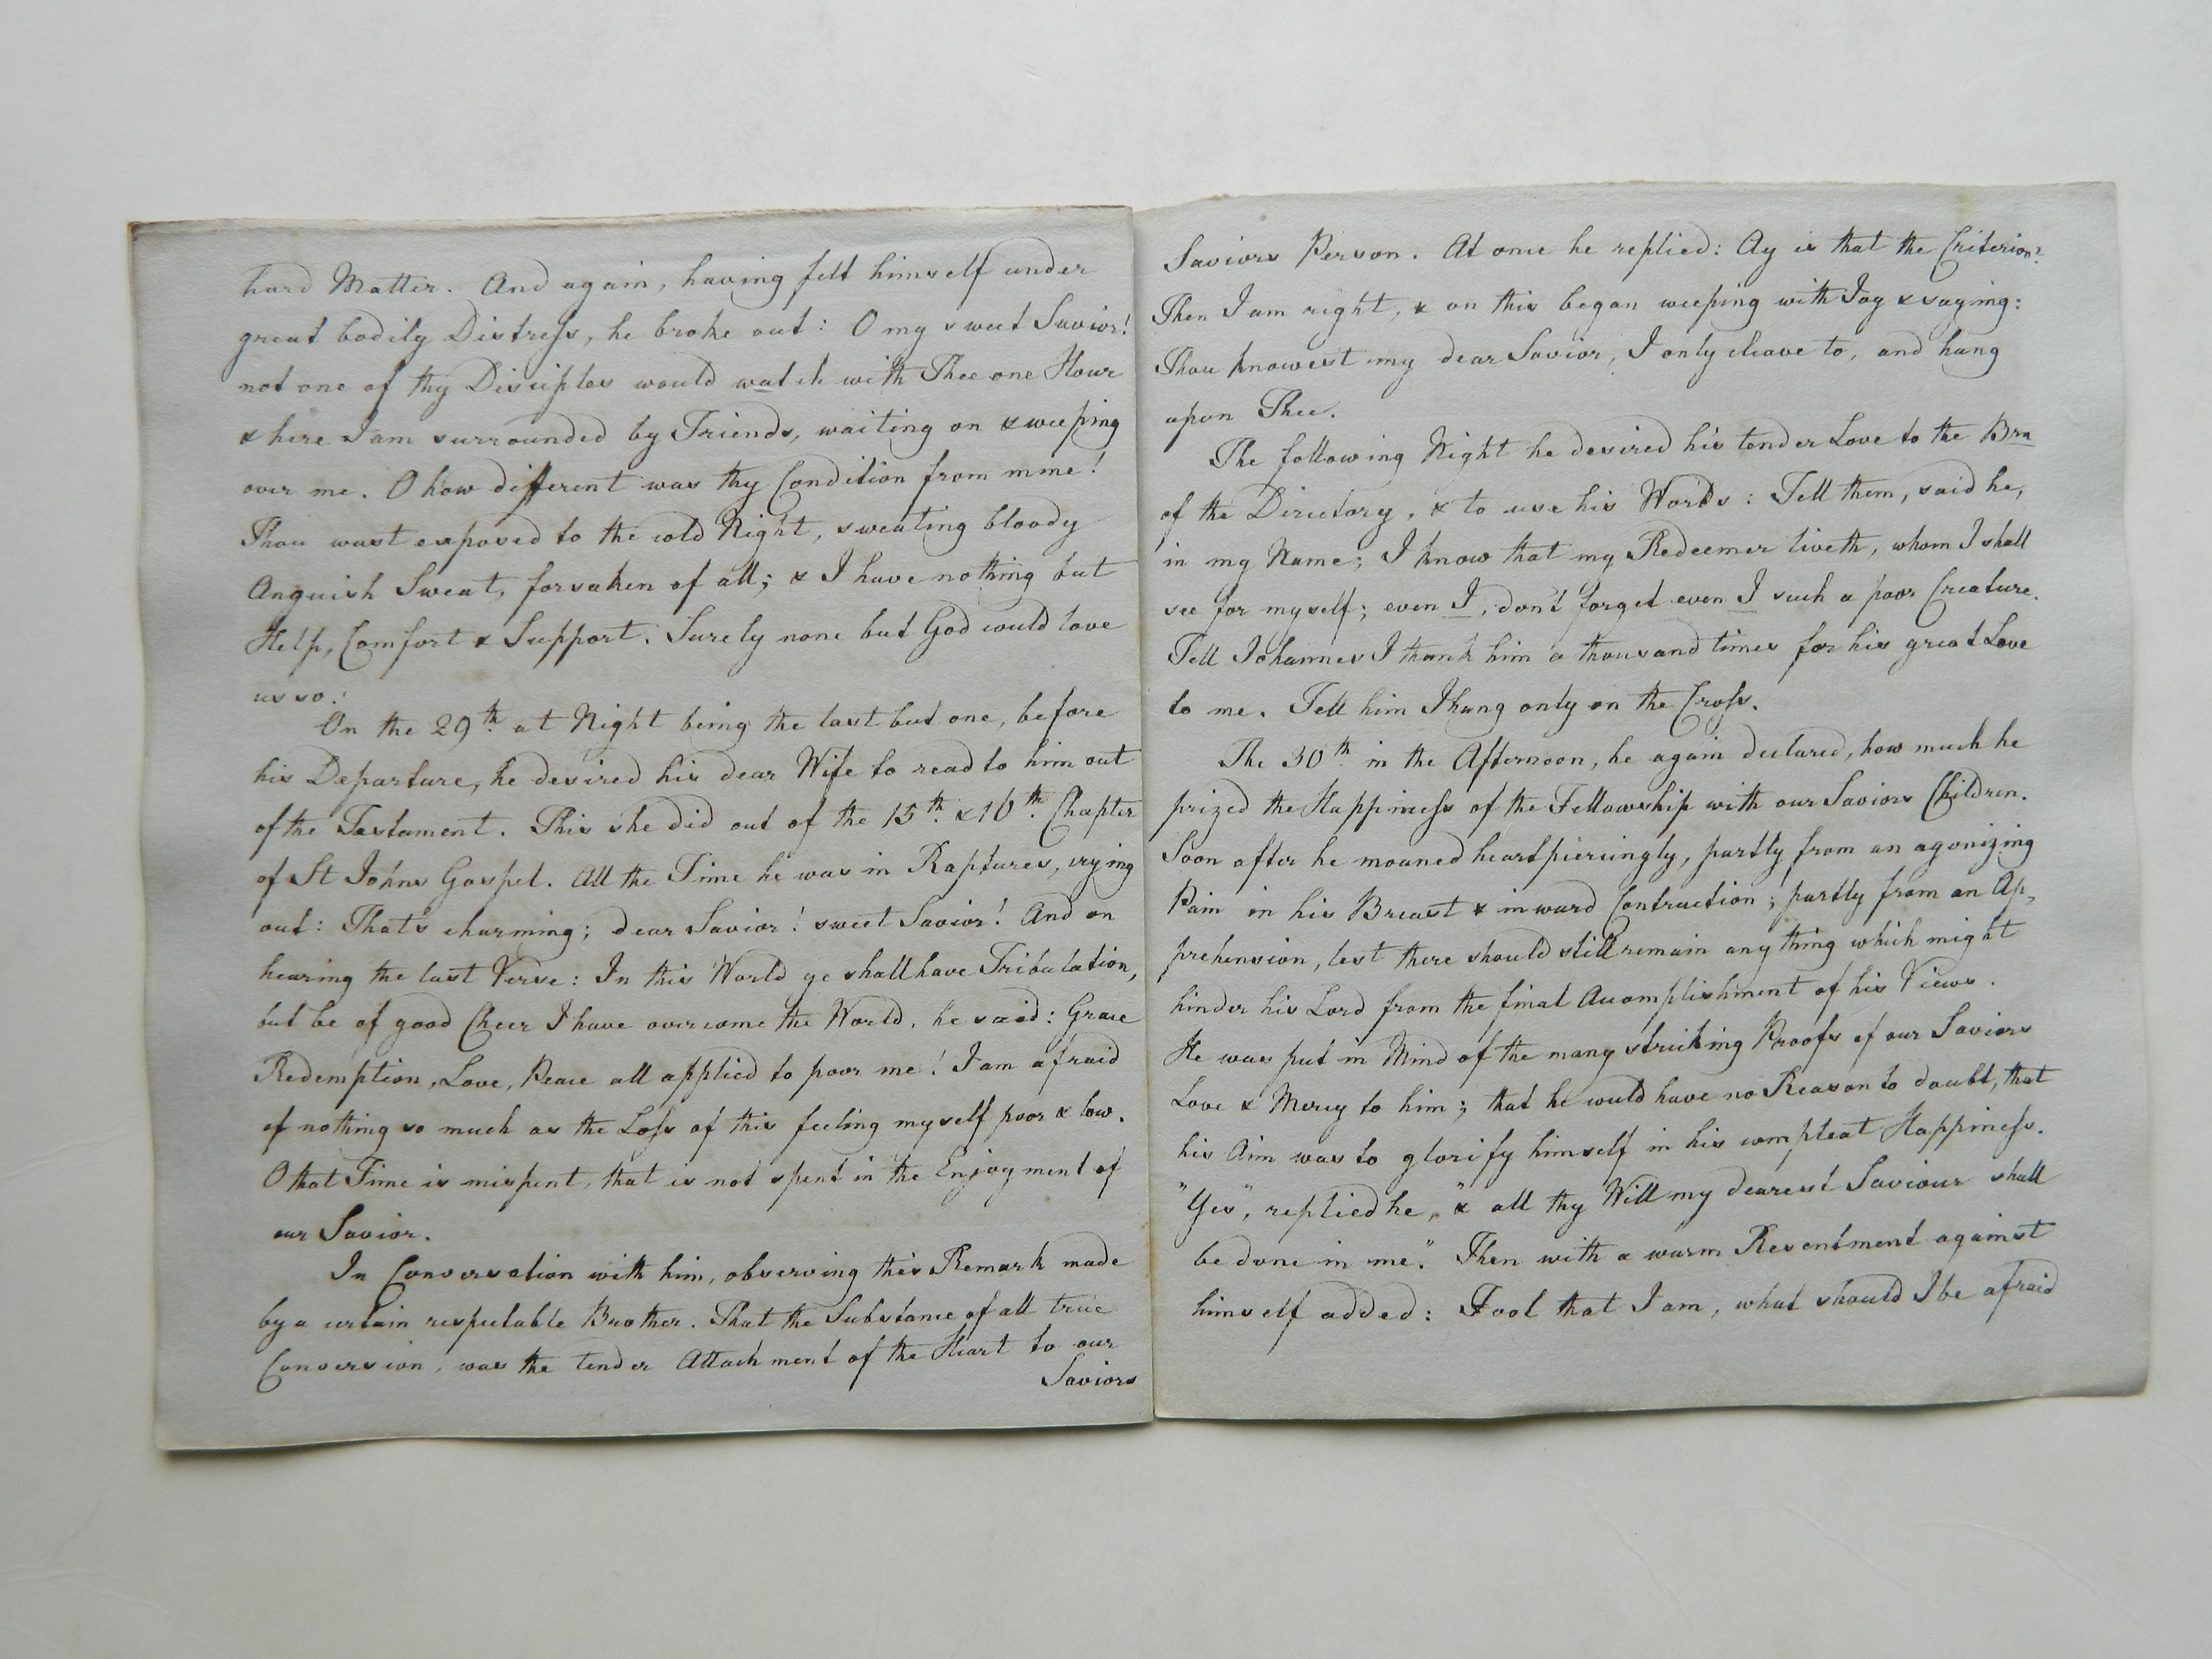 hard Matter. And again, having felt himself under
great bodily Distress, he broke out: O my sweet Savior!
not one of thy Disciples would watch with Thee one Hour
& here I am surrounded by Friends, waiting on & weeping
over me. O how different was thy Condition from mine!
Thou wast exposed to the cold Night, sweating bloody
Anguish Sweat, forsaken of all; & I have nothing but
Help, Comfort & Support. Surely none but God could love
us so!
On the 29th. at Night being the last but one, before
his Departure, he desired his dear Wife to read to him out
of the Testament. This she did out of the 15th. & 16th. Chapter
of St Johns Gospel. All the Time he was in Raptures, crying
out: That's charming; dear Savior! sweet Savior! And on
hearing the last Verse: In this World ye shall have Tribulation,
but be of good Cheer I have overcome the World, he said: Grace
Redemption, Love, Peace all applied to poor me! I am afraid
of nothing so much as the Loss of this feeling myself poor & low.
O that Time is mispent, that is not spent in the Enjoyment of
our Savior.
In Conversation with him, observing this Remark made
by a certain respectable Brother. That the Substance of all true
Conversion, was the tender Attachment of the Heart to our
Saviors
Saviors Person. At once he replied: Ay is that the Criterion?
Then I am right, & on this began weeping with Joy & saying:
Thou knowest my dear Savior, I only cleave to, and hang
upon Thee.
The following Night he desired his tender Love to the Brn
of the Directory, & to use his Words: Tell them, said he,
in my Name; I know that my Redeemer liveth, whom I shall
see for myself; even I, don't forget even I such a poor Creature.
Tell Johannes I thank him a thousand times for his great Love
to me. Tell him I hang only on the Cross.
The 30th. in the Afternoon, he again declared, how much he
prized the Happiness of the Fellowship with our Saviors Children.
Soon after he moaned heartpiercingly, partly from an agonizing
Pain in his Breast & inward Contraction; partly from an Ap,
prehension, lest there should still remain any thing which might
hinder his Lord from the final Accomplishment of his Views.
He was put in Mind of the many striking Proofs of our Saviors
Love & Mercy to him; that he could have no Reason to doubt, that
his Aim was to glorify himself in his compleat Happiness.
"Yes", replied he, "& all thy Will my dearest Saviour shall
be done in me." Then with a warm Resentment against
himself added: Fool that I am, what should I be afraid